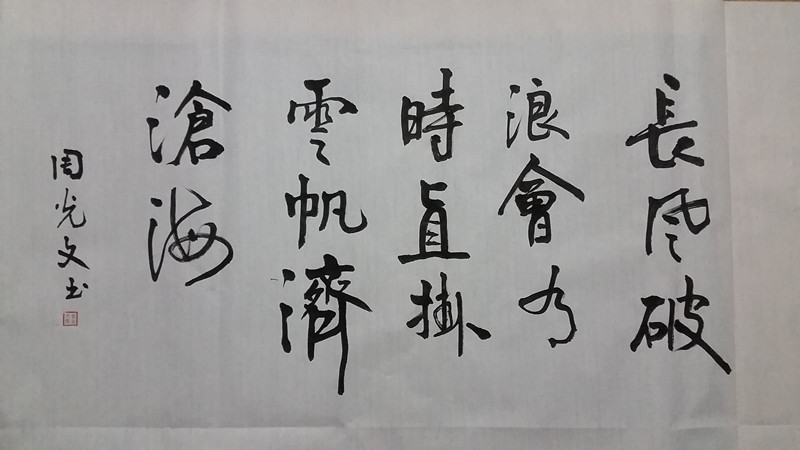 長風破
浪會有
時直掛
雲帆濟
滄海
周光文书